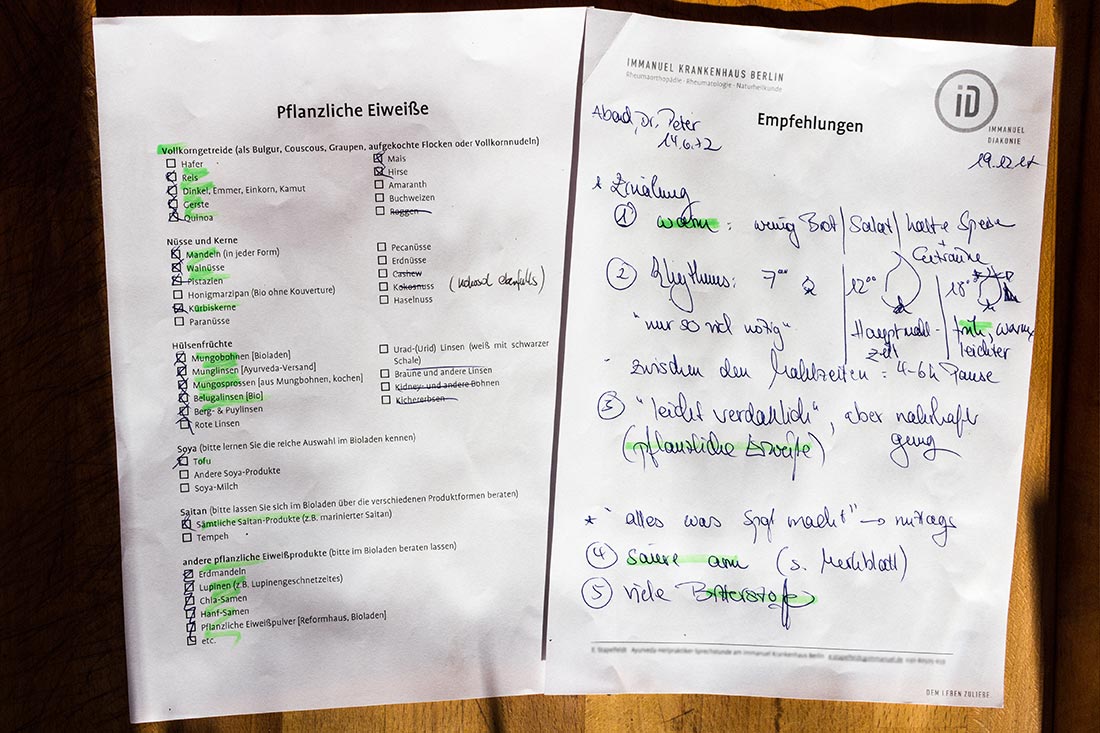 Pflanzliche Eiweiße
Vollkorngetreide (als Bulgur, Couscous, Graupen, aufgekochte Flocken oder Vollkornnudeln)
Hafer
Reis
Dinkel, Emmer, Einkorn, Kamut
Gerste
Quinoa
Mais
Hirse
Amaranth
Buchweizen
Roggen
Nüsse und Kerne
Mandeln (in jeder Form)
Walnüsse
Pistazien
Honigmarzipan (Bio ohne Kouvertüre)
Kürbiskerne
Paranüsse
Pecanüsse
Erdnüsse
Cashew
Kokosnuss
Haselnuss
Hülsenfrüchte
Mungobohnen [Bioladen]
Munglinsen [Ayurveda-Versand]
Mungosprossen [aus Mungbohnen, kochen]
Belugalinsen [Bio]
Berg- & Puylinsen
Rote Linsen
Urad-(Urid) Linsen (weiß mit schwarzer
Schale)
Braune und andere Linsen
Kidney- und andere Bohnen
Kichererbsen
Soya (bitte lernen Sie die reiche Auswahl im Bioladen kennen)
Tofu
Andere Soya-Produkte
Soya-Milch
Saitan (bitte lassen Sie sich im Bioladen über die verschiedenen Produktformen beraten)
Sämtliche Saitan-Produkte (z.B. marinierter Saitan)
Tempeh
andere pflanzliche Eiweißprodukte (bitte im Bioladen beraten lassen)
Erdmandeln
Lupinen (z.B. Lupinengeschnetzeltes)
Chia-Samen
Hanf-Samen
Pflanzliche Eiweißpulver [Reformhaus, Bioladen]
etc.
IMMANUEL KRANKENHAUS BERLIN
Rheumaorthopädie · Rheumatologie · Naturheilkunde
iD
IMMANUEL
DIAKONIE
Empfehlungen
Dr. Peter
14.6.72
* Ernährung
① warm: wenig Brot / Salat / kalte Speise
+ Getränke
② Rhythmus: 7°° 12°° 18°°
"nur so viel nötig"
Hauptmahlzeit
früh, warm,
leichter
- zwischen den Mahlzeiten = 4-6h Pause
③ "leicht verdaulich", aber nahrhaft
genug
(pflanzliche Eiweiße)
* "alles was macht" → mittags
④ säure arm (s. Merkblatt)
⑤ viele Bitterstoffe
DEM LEBEN ZULIEBE.